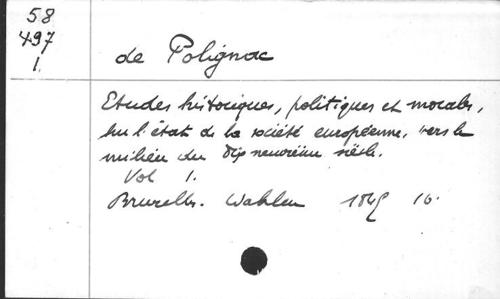 58
497
1.
de Polignac
Etudes historiques, politiques et morales,
sur l'état de la société européenne, vers le
milieu du dix neuvième siècle.
Vol 1.
Bruxelles. Wahlen 1845 16.